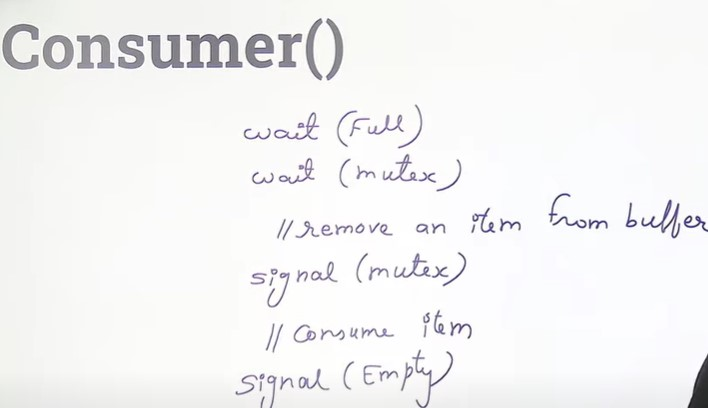 Consumer()
wait (Full)
wait (mutex)
// remove an item from buffer
signal (mutex)
// Consume item
signal (Empty)